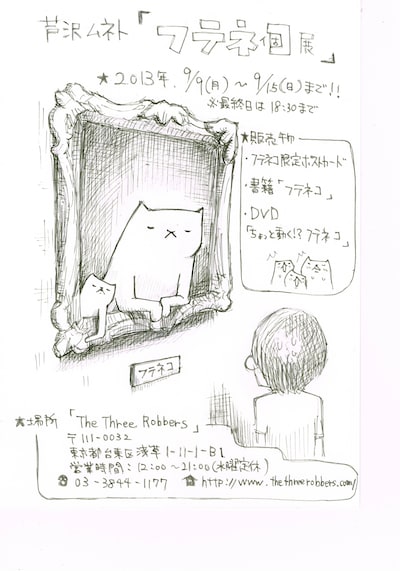 芦沢ムネト「フテネ個展」
★2013年.9/9(月)~9/15(日)まで!!
※最終日は18:30まで
★販売物
・フテネコ限定ポストカード
・書籍「フテネコ」
・DVD
「ちょっと動く!?フテネコ」
フテネコ
★場所「The Three Robbers」
〒111-0032
東京都台東区浅草1-11-1-B1
営業時間:12:00~21:00(水曜定休)
03-3844-1177 http://www.thethreerobbers.com/